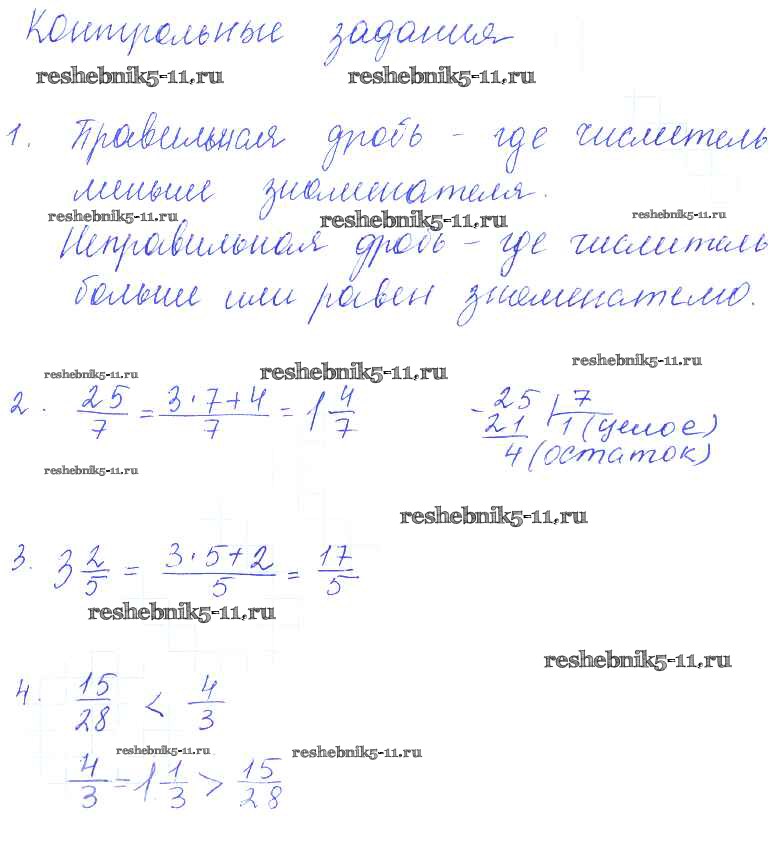 Контрольные задания
reshebnik5-11.ru reshebnik5-11.ru
1. Правильная дробь - где числитель
меньше знаменателя.
reshebnik5-11.ru reshebnik5-11.ru reshebnik5-11.ru
Неправильная дробь - где числитель
больше или равен знаменателю.
reshebnik5-11.ru reshebnik5-11.ru reshebnik5-11.ru
2. 25/7 = 3·7+4/7 = 1 4/7
- 25 | 7
21 1 (целое)
4 (остаток)
reshebnik5-11.ru
reshebnik5-11.ru
3. 3 2/5 = 3·5+2/5 = 17/5
reshebnik5-11.ru
reshebnik5-11.ru
4. 15/28 < 4/3
reshebnik5-11.ru reshebnik5-11.ru
4/3 = 1 1/3 > 15/28